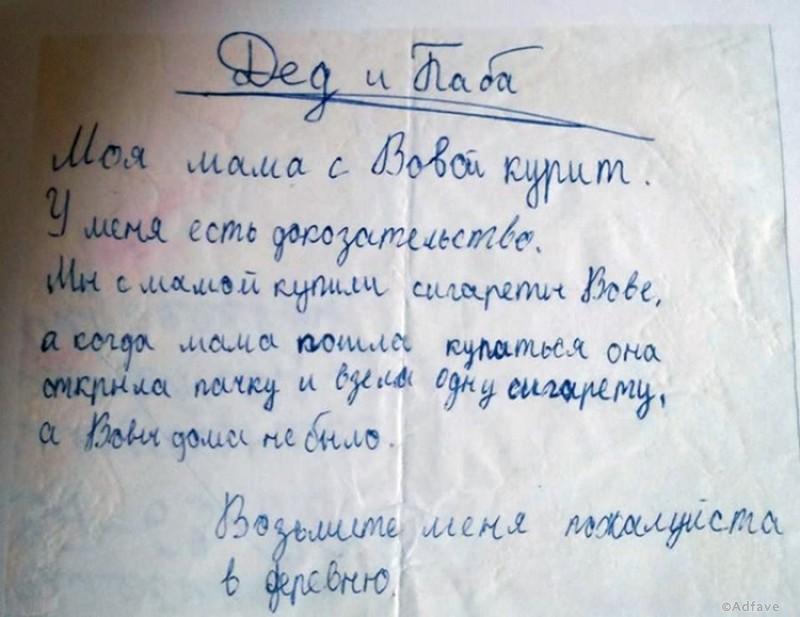 Дед и Баба
Моя мама с Вовой курит.
У меня есть докозательство.
Мы с мамой купили сигареты Вове,
а когда мама пошла купаться она
открыла пачку и взела одну сигарету,
а Вовы дома не было.
Возьмите меня пожалуйста
в деревню.
©Adfave